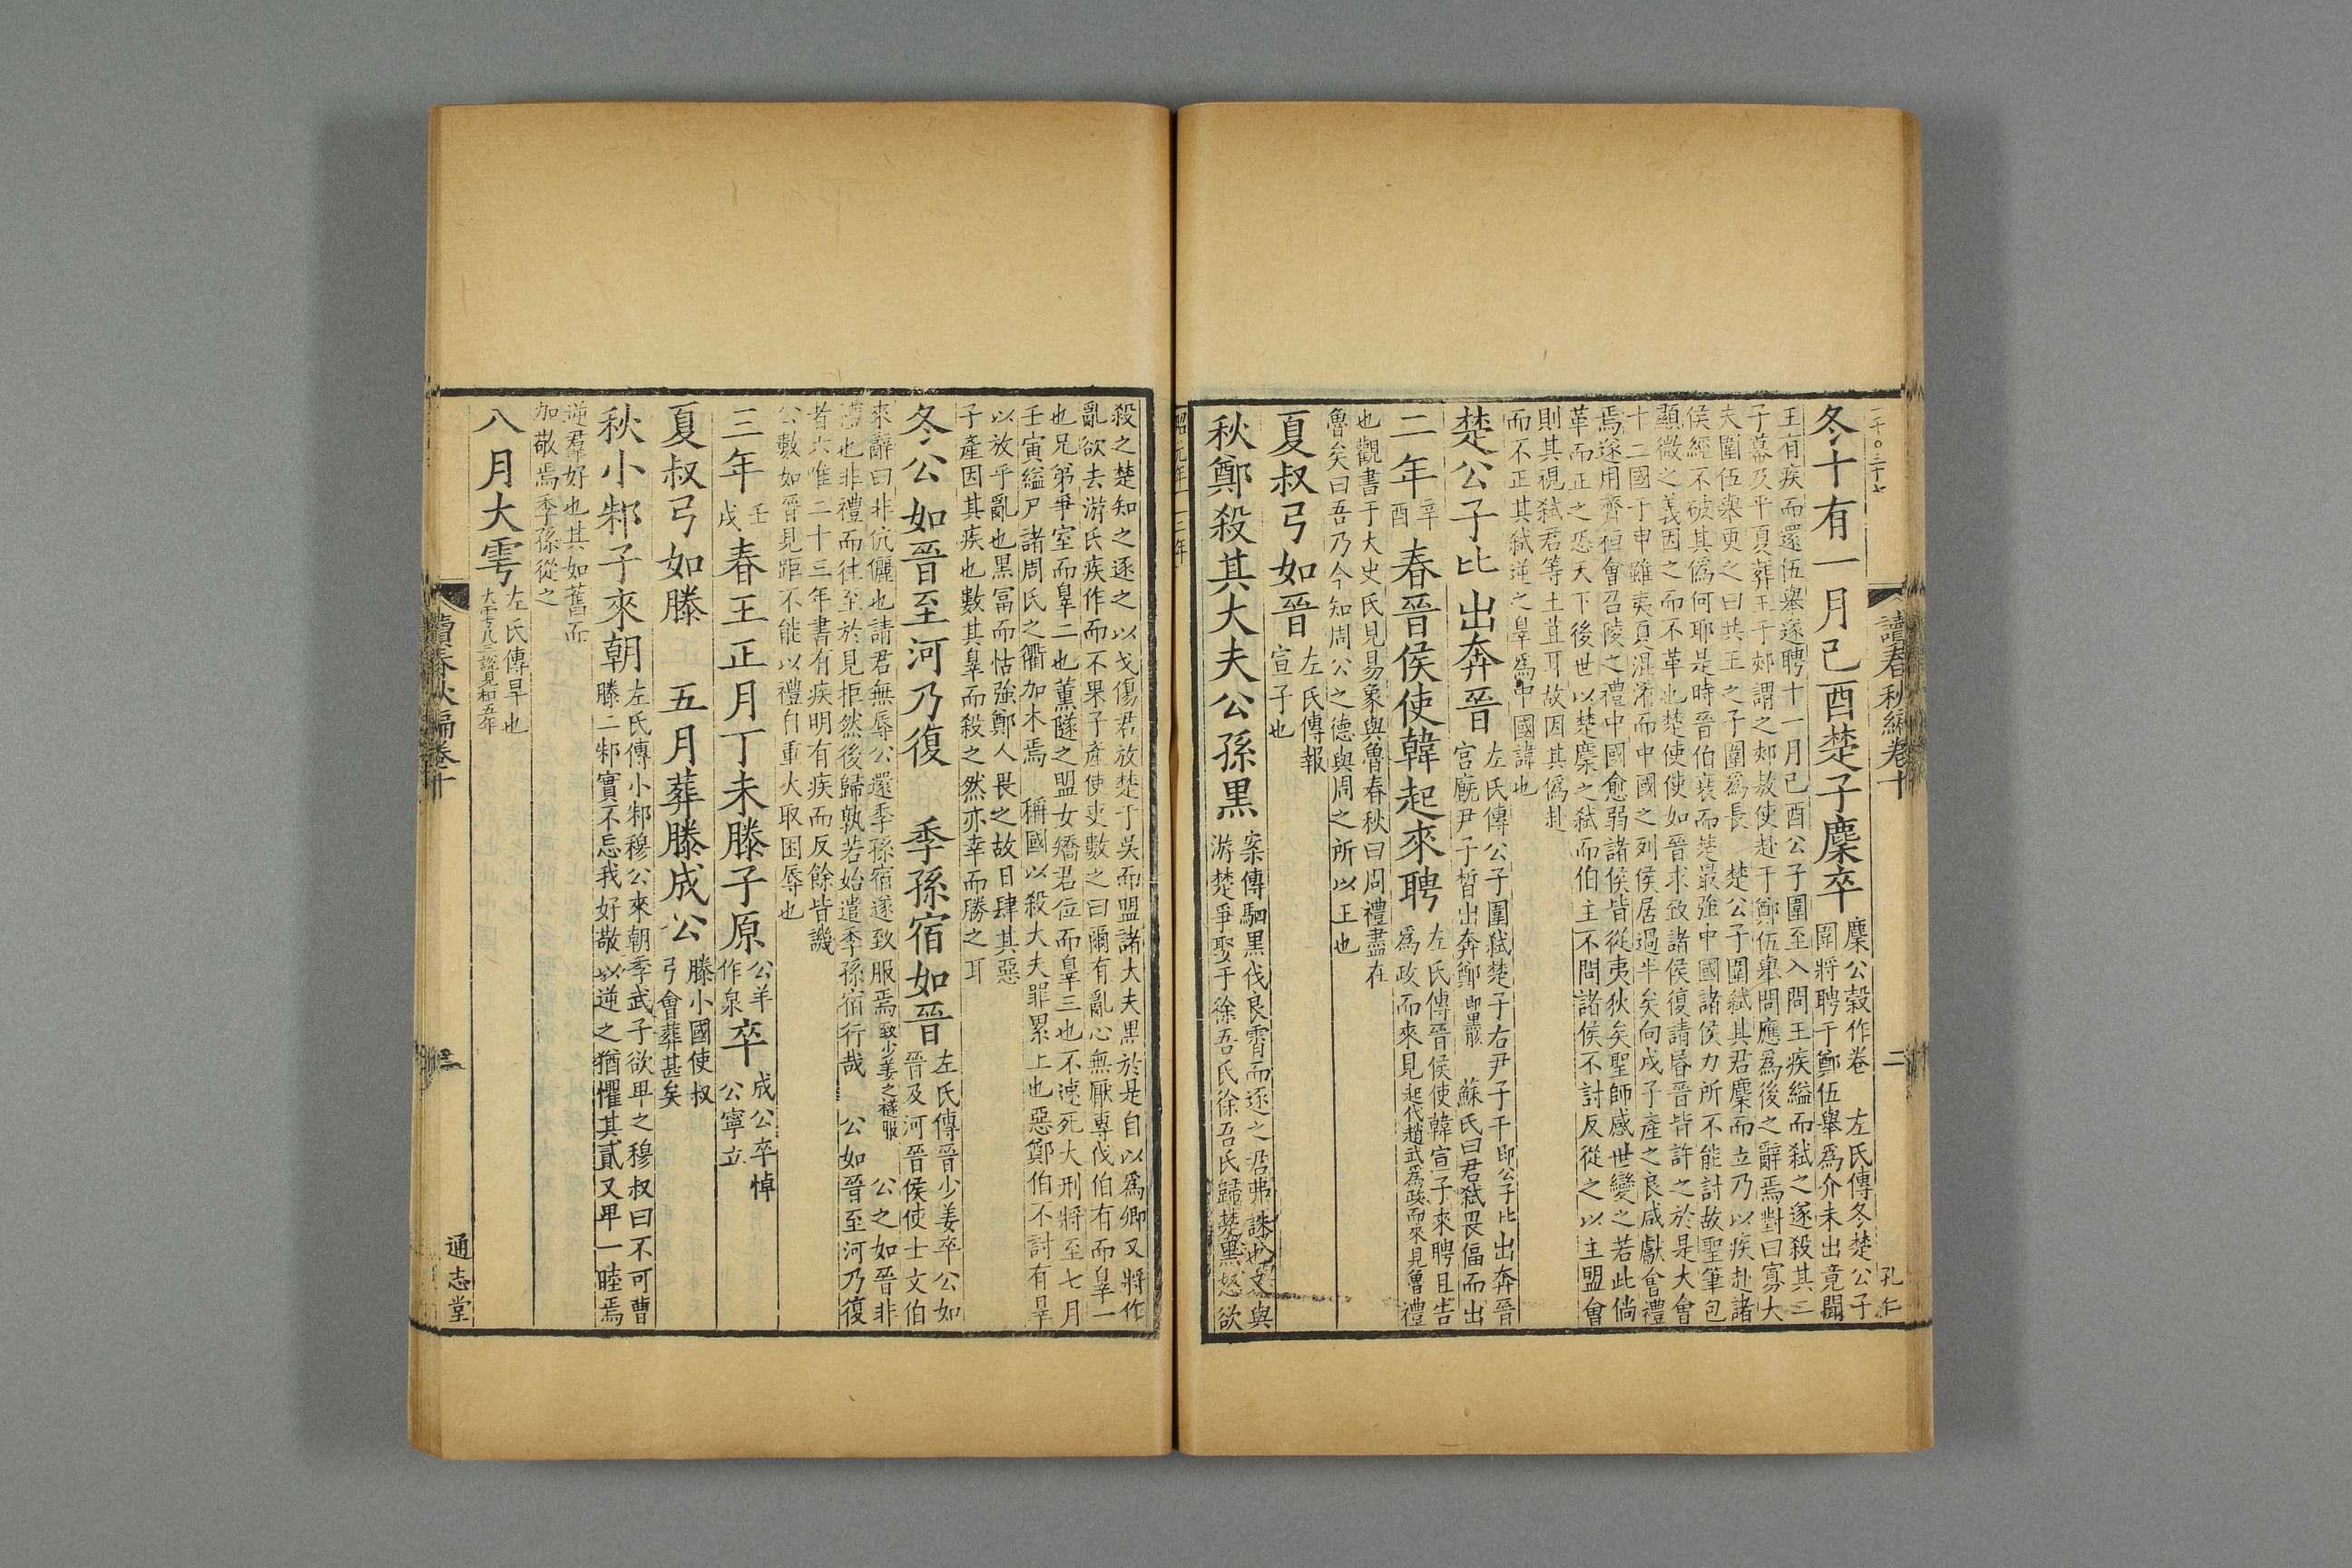 一千〇三十七
讀春秋編卷十
二
孔仁
冬十有一月己酉楚子麇卒
麇公穀作卷　左氏傳冬楚公子
圍將聘于鄭伍舉爲介未出竟聞
王有疾而還伍舉遂聘十一月己酉公子圍至入問王疾縊而弑之遂殺其二
子幕及平夏葬王于郟謂之郟敖使赴于鄭伍舉問應爲後之辭焉對曰寡大
夫圍伍舉更之曰共王之子圍爲長　楚公子圍弑其君麇而立乃以疾赴諸
侯經不破其僞何耶是時晉伯衰而楚最強中國諸侯力所不能討故聖筆包
顯微之義因之而不革也楚使使如晉求致諸侯復請昬晉皆許之於是大會
十二國于申雖夷而中國之列侯居過半矣向戌子產之良咸獻會禮
焉遂用齊桓會召陵之禮中國愈弱諸侯皆從夷狄矣聖師感世變之若此倘
革而正之恐天下後世以楚麇之弑而伯主不問諸侯不討反從之以主盟會
則其視弑君等土苴耳故因其僞赴
而不正其弑逆之辠爲中國諱也
楚公子比出奔晉
左氏傳公子圍弑楚子右尹子干卽公子比出奔晉
宮廄尹子晳出奔鄭卽黑肱　蘇氏曰君弑畏偪而出
二年
辛
酉
春晉侯使韓起來聘
左氏傳晉侯使韓宣子來聘且告
爲政而來見起代趙武爲政而來見魯禮
也觀書于大史氏見易象與魯春秋曰周禮盡在
魯矣曰吾乃今知周公之德與周之所以王也
夏叔弓如晉
左氏傳報
宣子也
秋鄭殺其大夫公孫黑
案傳駟黑伐良霄而逐之君弗誅也又與
游楚爭娶于徐吾氏徐吾氏歸楚黑怒欲
昭元年　二年
殺之楚知之逐之以戈傷君放楚于吳而盟諸大夫黑於是自以爲卿又將作
亂欲去游氏疾作而不果子產使吏數之曰爾有亂心無厭專伐伯有而辠一
也兄弟爭室而辠二也薰隧之盟女矯君位而辠三也不速死大刑將至七月
壬寅縊尸諸周氏之衢加木焉　稱國以殺大夫罪累上也惡鄭伯不討有辠
以放乎亂也黑富而怙強鄭人畏之故日肆其惡
子產因其疾也數其辠而殺之然亦幸而勝之耳
冬公如晉至河乃復　季孫宿如晉
左氏傳晉少姜卒公如
晉及河晉侯使士文伯
來辭曰非伉儷也請君無辱公還季孫宿遂致服焉致少姜之襚服　公之如晉非
禮也非禮而往至於見拒然後歸孰若始遣季孫宿行哉　公如晉至河乃復
者六惟二十三年書有疾明有疾而反餘皆譏
公數如晉見距不能以禮自重大取困辱也
三年
壬
戌
春王正月丁未滕子原
公羊
作泉
卒
成公卒悼
公寧立
夏叔弓如滕　五月葬滕成公
滕小國使叔
弓會葬甚矣
秋小邾子來朝
左氏傳小邾穆公來朝季武子欲卑之穆叔曰不可曹
滕二邾實不忘我好敬以逆之猶懼其貳又卑一睦焉
逆羣好也其如舊而
加敬焉季孫從之
八月大雩
左氏傳旱也
大雩凡三說見桓五年
讀春秋編卷十
通志堂